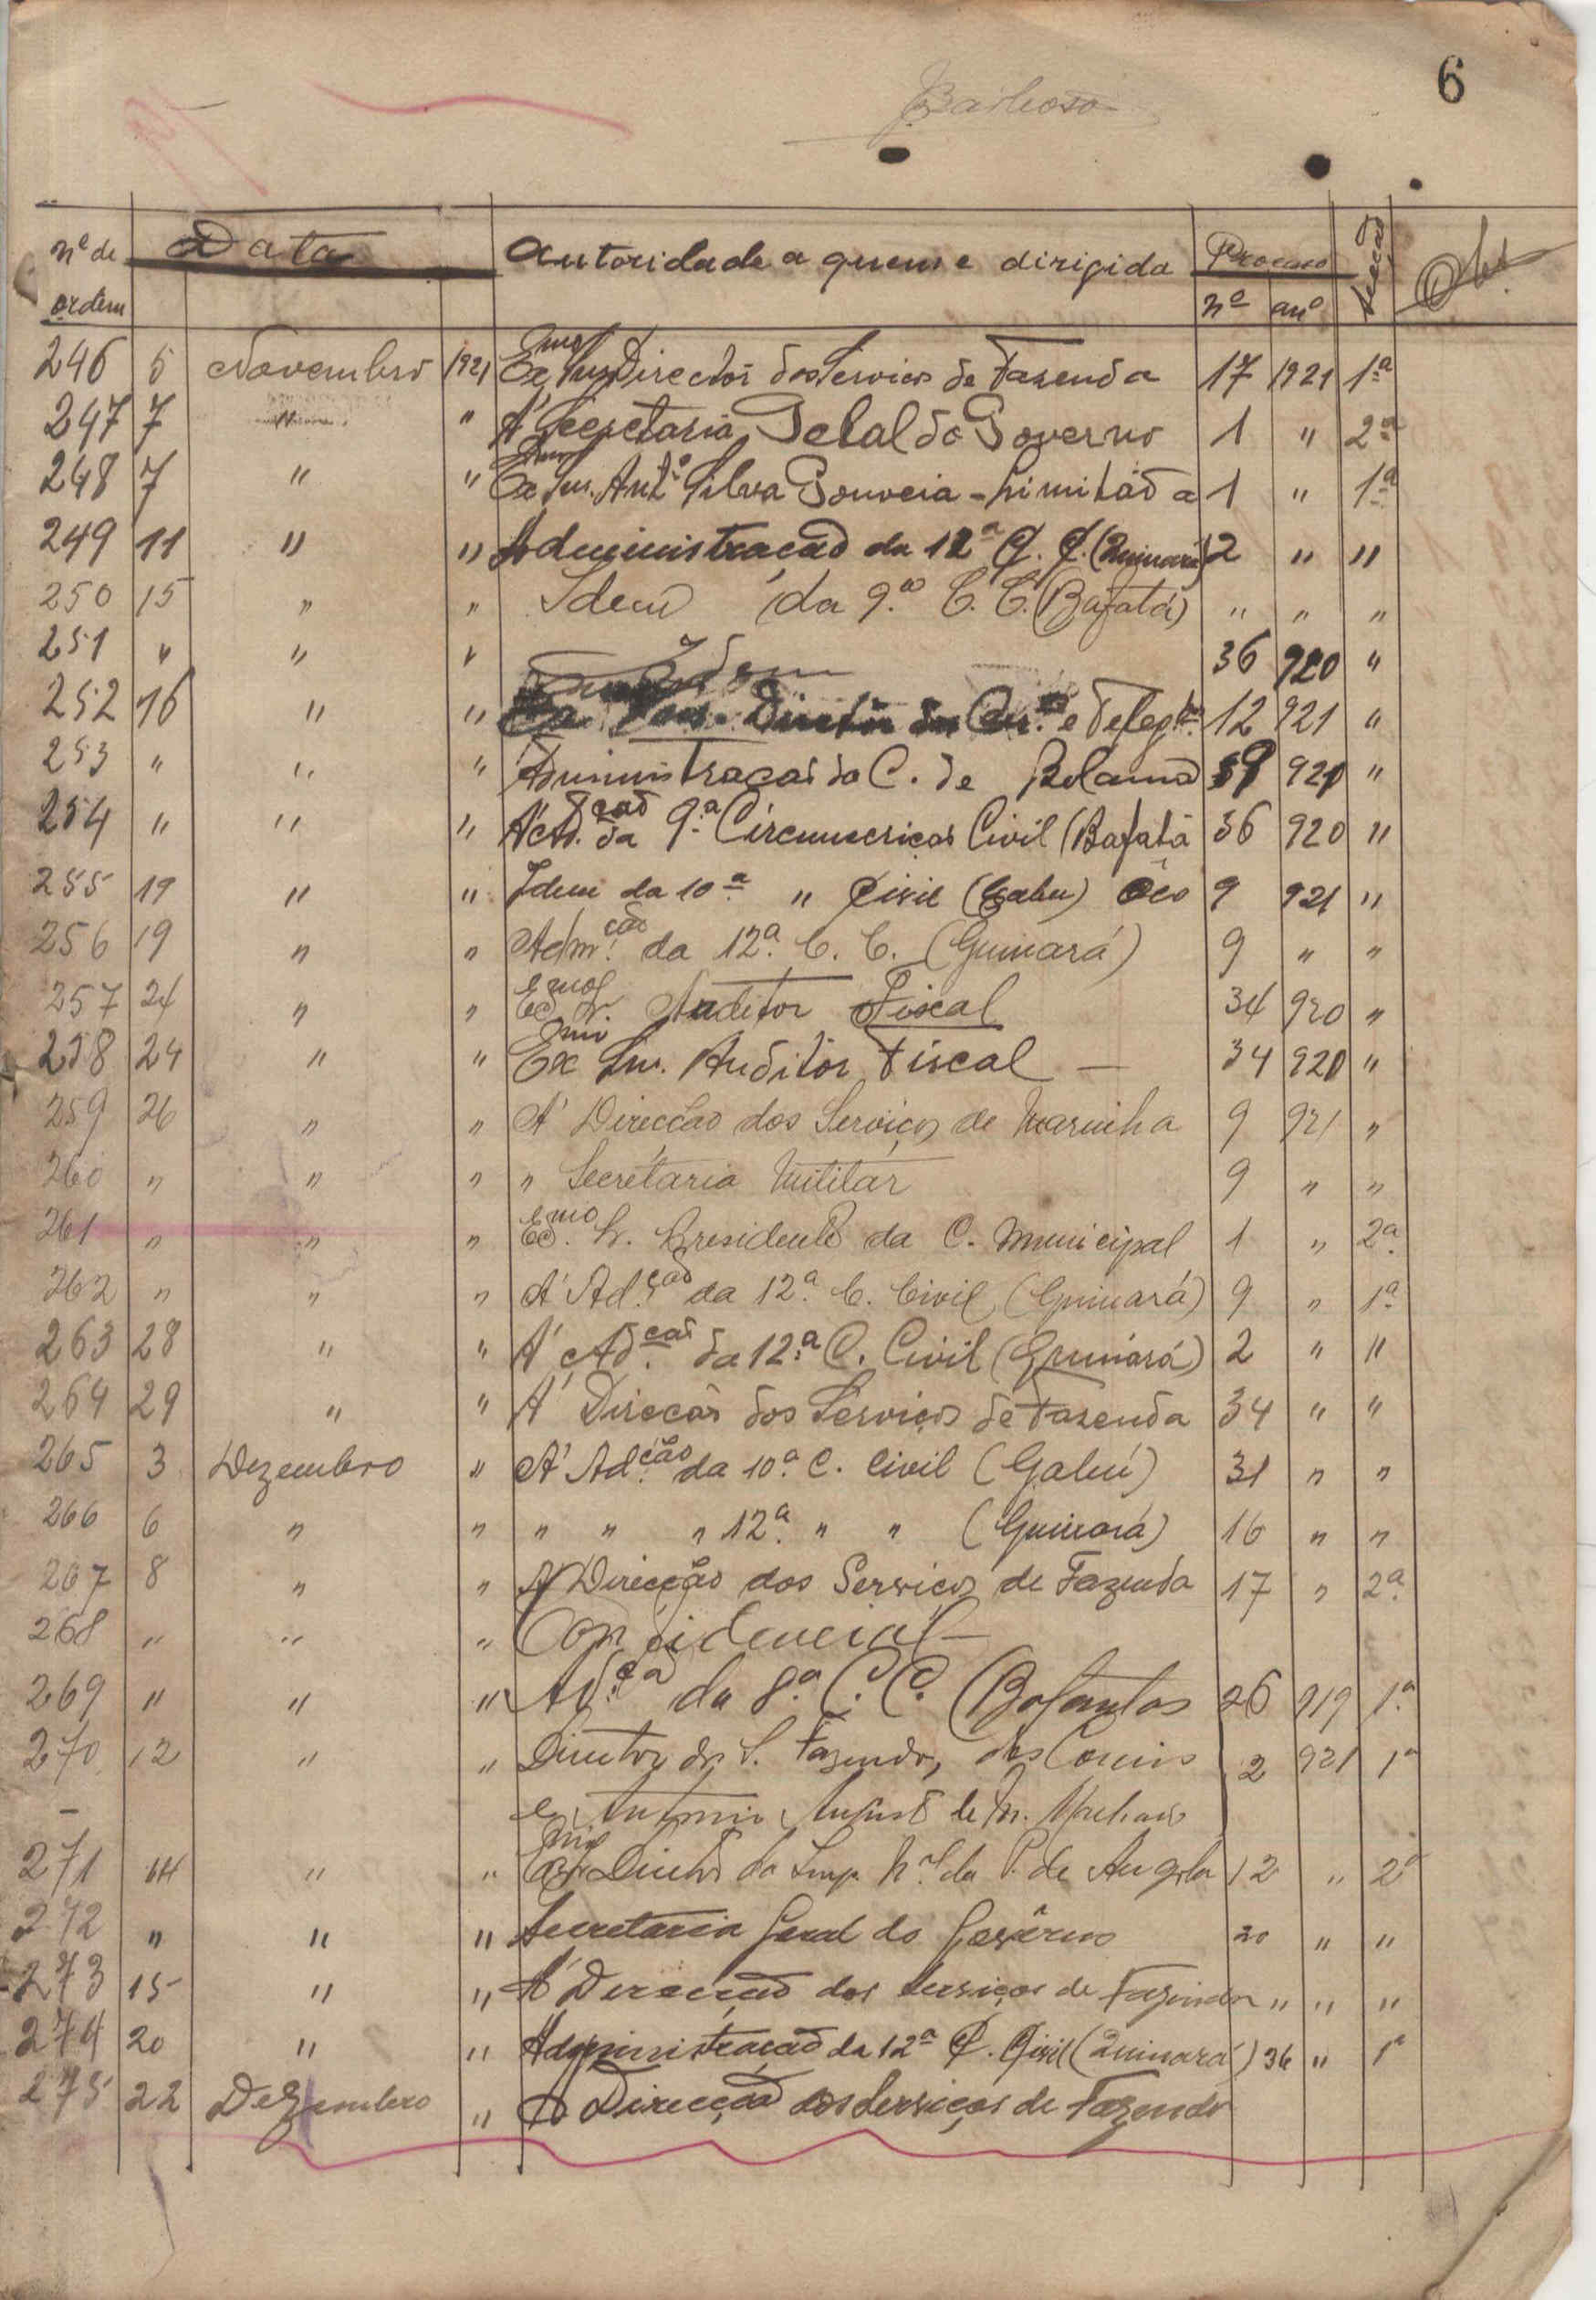 6
Barbosa
nº de ordem Data Autoridade a quem é dirigida Processo nº anº Secção Obs
246 5 Novembro 1921 Exmo Snr Director dos Serviços de Fazenda 17 1921 1ª
247 7 " " Á Secretaria Geral do Governo 1 " 2ª
248 7 " " Exmo Snr. Antº Silva Gouveia - Limitada 1 " 1ª
249 11 " " Administração da 12ª C. C. (Quinará) 2 " "
250 15 " " Idem da 9.ª C. C. (Bafatá) " " "
251 " " " Idem 36 920 "
252 16 " " Director dos Corr.os e Telegr. 12 921 "
253 " " " Administração do C. de Bolama 59 921 "
254 " " " Á Ad.ção da 9.ª Circumscrição Civil (Bafatá 36 920 "
255 19 " " Idem da 10ª " Civil (Gabu) Oco 9 921 "
256 19 " " Adm.ção da 12.ª C. C. (Guinará) 9 " "
257 24 " " Exmo Sr. Auditor Fiscal 34 920 "
258 24 " " Exmo Snr. Auditor Fiscal — 34 920 "
259 26 " " Á Direcção dos Serviços de Marinha 9 921 "
260 " " " " Secretaria Militar 9 " "
261 " " " Exmo. Sr. Presidente da C. Municipal 1 " 2ª
262 " " " Á Ad.ção da 12.ª C. Civil (Guinará) 9 " 1ª
263 28 " " Á Ad.ção da 12.ª C. Civil (Guinará) 2 " "
264 29 " " Á Direcção dos Serviços de Fazenda 34 " "
265 3 Dezembro " Á Ad.ção da 10.ª C. Civil (Gabú) 31 " "
266 6 " " " " " 12.ª " " (Guinará) 16 " "
267 8 " " Á Direcção dos Serviços de Fazenda 17 " 2ª
268 " " " Confidencial —
269 " " " Ad.ção da 8.ª C. C. (Bafantas 26 919 1.ª
270 12 " " Director dos S. Fazenda, dos Correios 2 921 1ª
- e Antonio August de M.
271 14 " " Exmo Sr. Director da Imp. Nal da P. de Angola 12 " 2ª
272 " " " Secretaria Geral do Govêrno 20 " "
273 15 " " Á Direcção dos Serviços de Fazenda " " "
274 20 " " Administração da 12ª C. Civil (Quinará) 36 " 1ª
275 22 Dezembro " Á Direcção dos Serviços de Fazenda